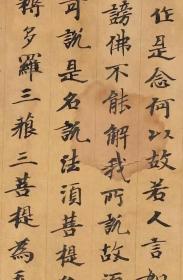 作是念何以故若人言如
謗佛不能解我所說故
可說是名說法須菩提
耨多羅三藐三菩提為